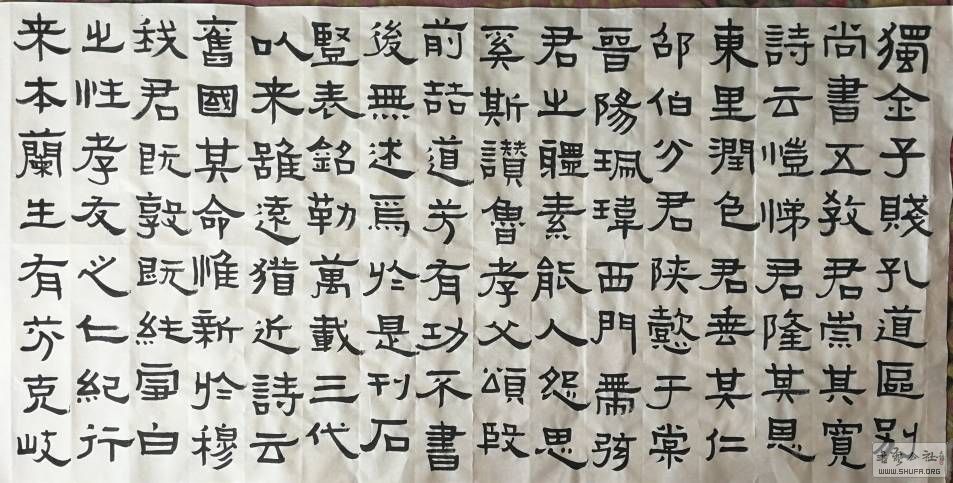 獨金子賤孔道區別
尚書五教君崇其寬
詩云愷悌君隆其恩
東里潤色君垂其仁
邵伯分君陕懿于棠
晉陽珮瑋西門帶弦
君之體素能人怨思
奚斯讚魯孝父頌殷
前喆道芳有功不書
後無述焉於是刊石
豎表銘勒萬載三代
以来雖遠猶近詩云
舊國其命惟新於穆
我君既敦既純雪白
之性孝友之仁紀行
来本蘭生有芬克岐
WWW.SHUFA.ORG